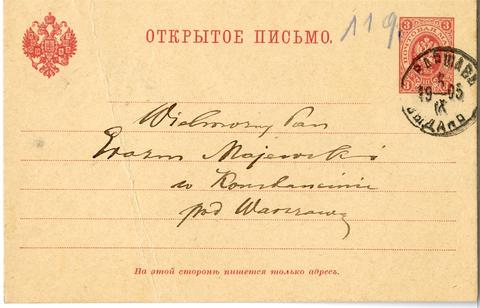 ОТКРЫТОЕ ПИСЬМО.
119.
3 3
ВАРШАВА
5
19-05
IX
ВЫДАНО
Wielmożny Pan
Erazm Majewski
w Konstancinie
pod Warszawą
На этой сторонѣ пишется только адресъ.